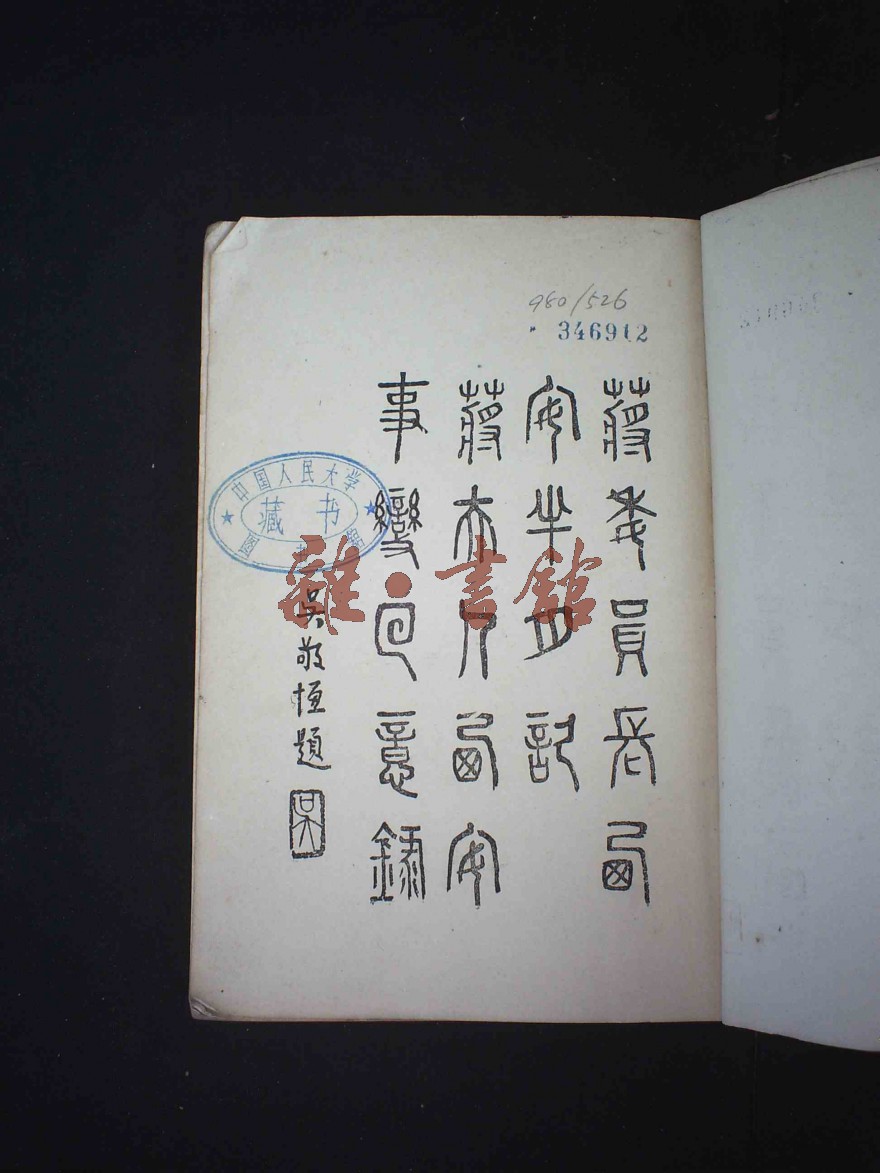 980/526
346912
蔣委員長西
安半月記
蔣夫人西安
事變回憶錄
吳敬恆題
吳
中国人民大学
藏书
圖書館
雜·書館